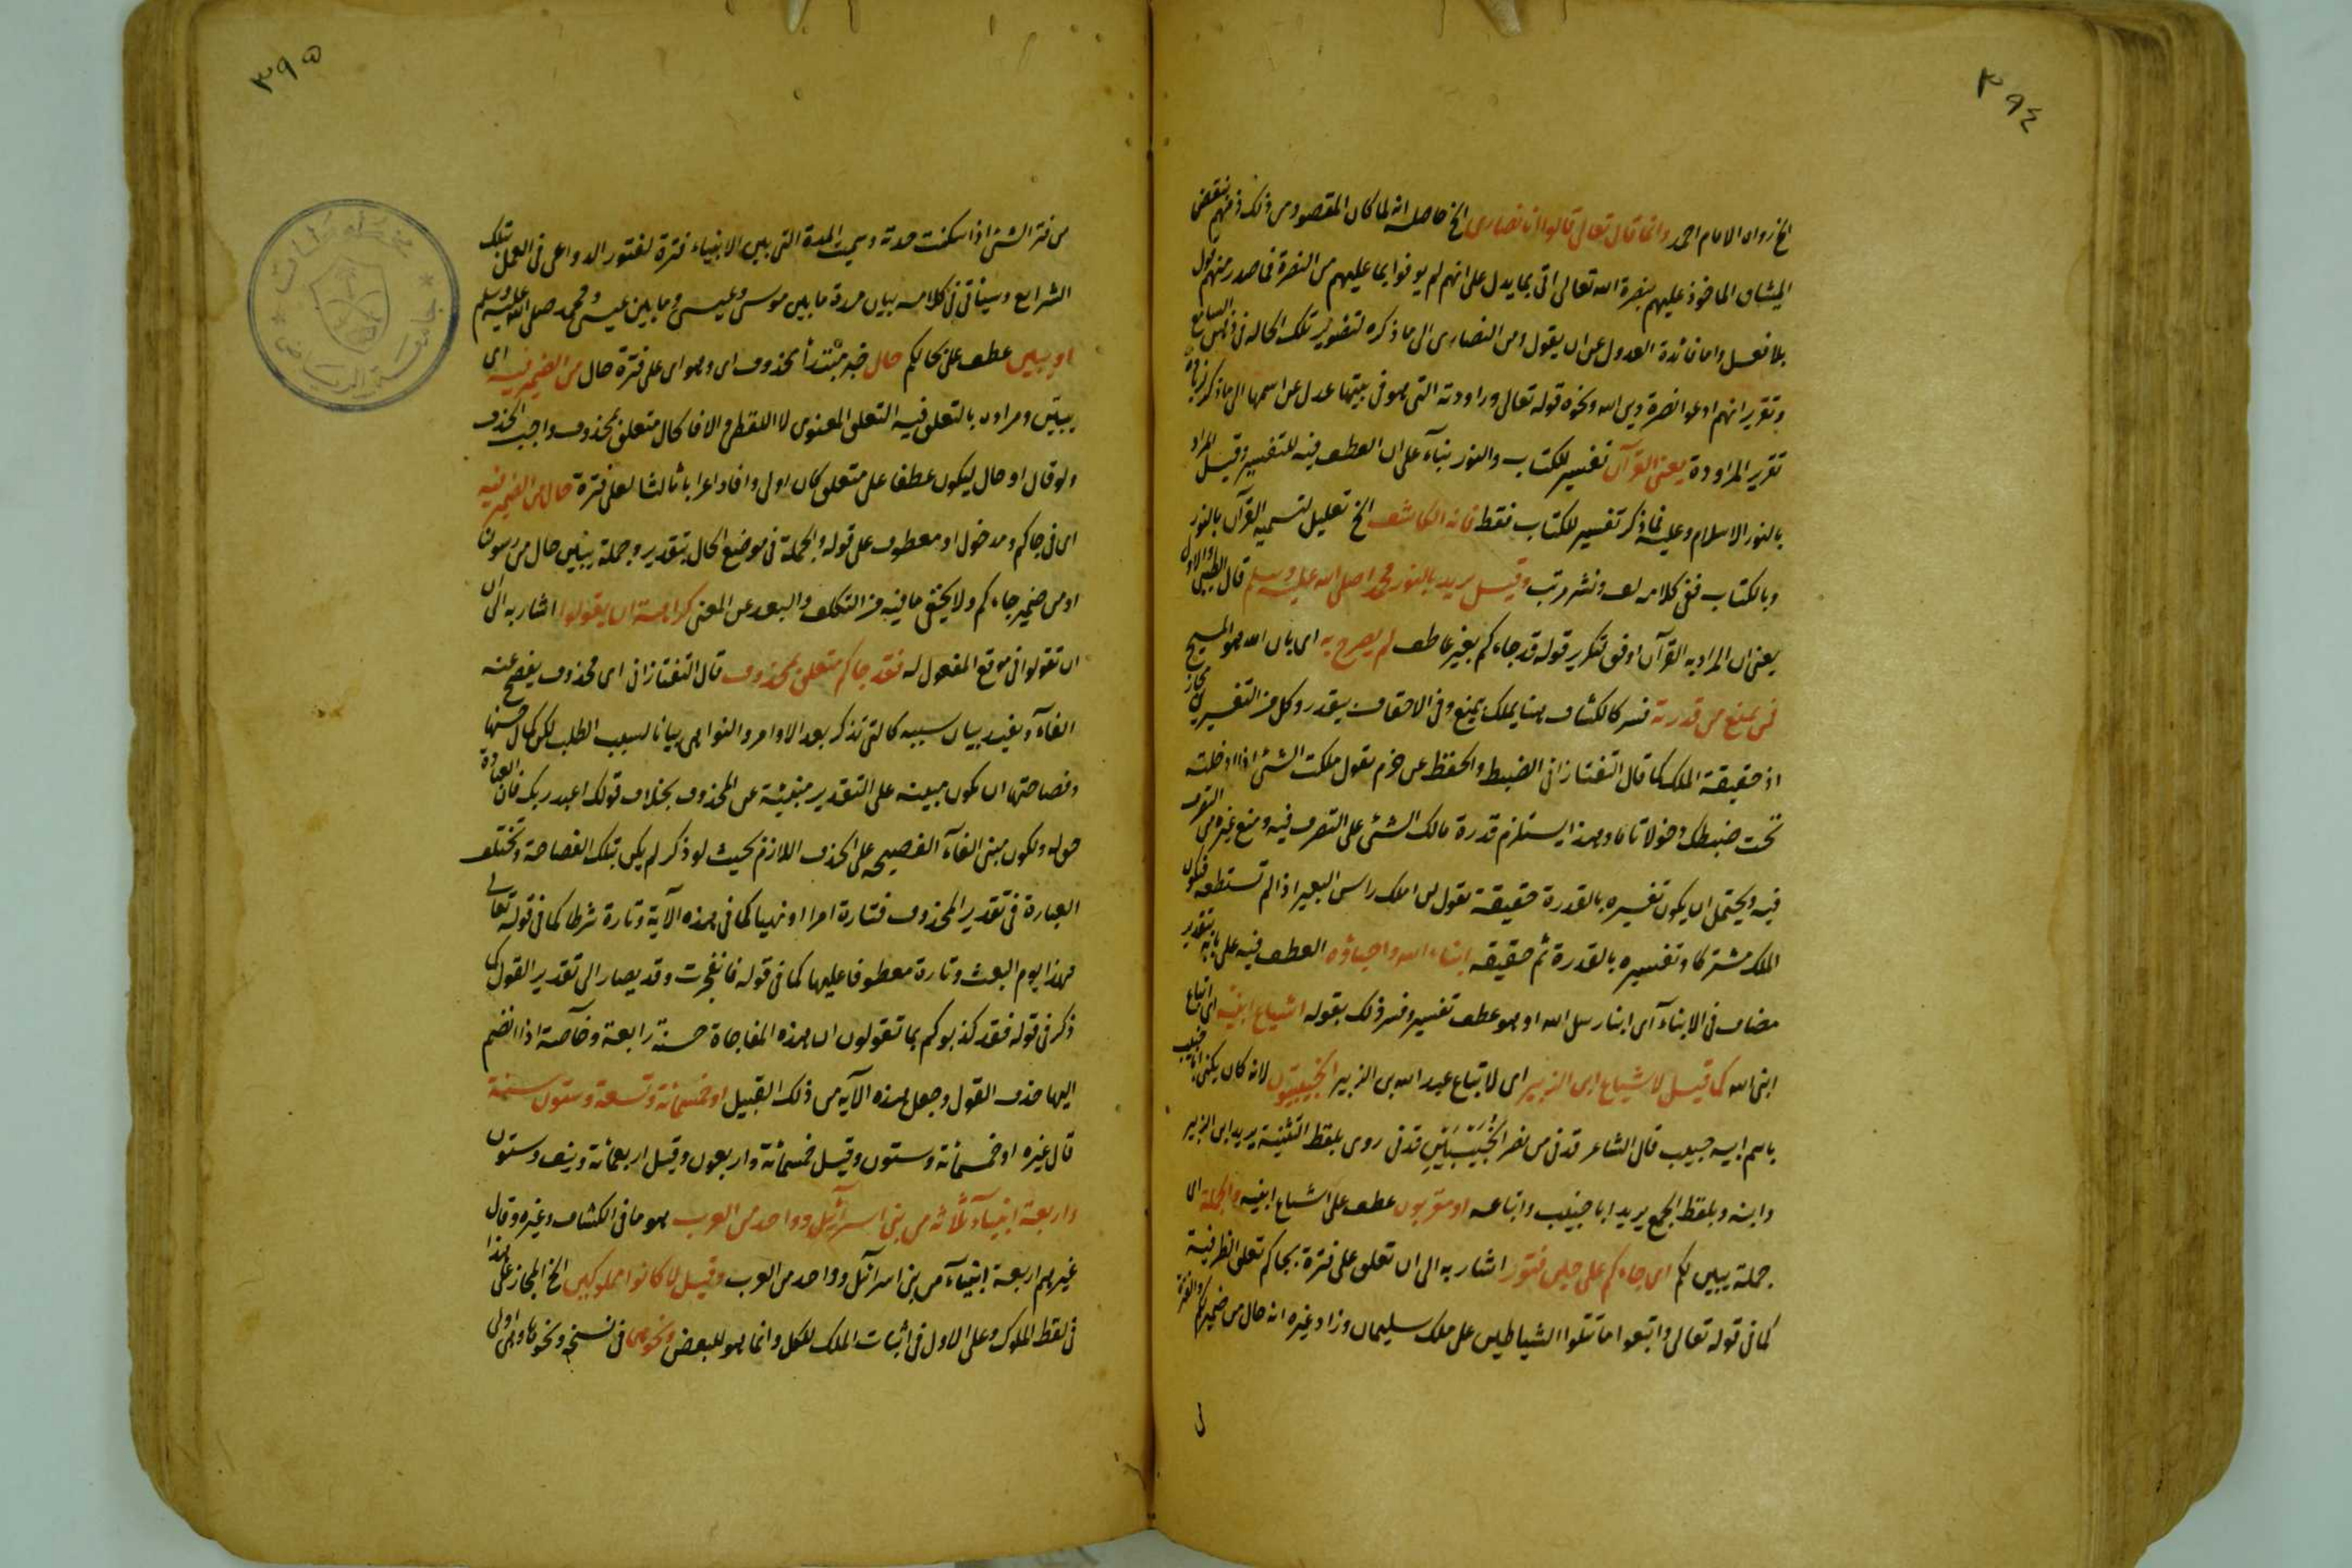 ٣٩٤
الخ رواه الامام احمد وانما قال تعالى قالوا انا نصارى الخ حاصله انه لما كان المقصود من ذلك ذمهم بنقض
الميثاق الماخوذ عليهم بنصرة الله تعالى اتى بما يدل على انهم لم يوفوا بما عليهم من النصرة فما صدر منهم قول
بلا فعل واما فائدة العدول عن ان يقول ومن النصارى الى ما ذكره لتصوير تلك الحالة فى ذهن السامع
وتقرير انهم ادعوا نصرة دين الله ونحوه قوله تعالى وراودته التى هو فى بيتها عدل عن اسمها الى ما ذكر لزيادة
تقرير المراودة يعنى القرآن تفسير للكتاب والنور بناء على ان العطف فيه للتفسير وقيل المراد
بالنور الاسلام وعليه فما ذكر تفسير للكتاب فقط فانه الكاشف الخ تعليل لتسمية القرآن بالنور
وبالكتاب ففى كلامه لف ونشر مرتب وقيل يريد بالنور محمدا صلى الله عليه وسلم قال الطيبى والاول
يعنى ان المراد به القرآن اوفق لتكرير قوله قد جاءكم بغير عاطف لم يصرح به اى بان الله هو المسيح
فمن يمنع من قدرته فسر كالكشاف هنا يملك بيمنع وفى الاحقاف بيقدر وكل من التفسيرين مجاز
اذ حقيقة الملك كما قال التفتازانى الضبط والحفظ عن حزم تقول ملكت الشئ اذا ادخلته
تحت ضبطك دخولا تاما وهذا يستلزم قدرة مالك الشئ على التصرف فيه ومنع غيره من التصرف
فيه ويحتمل ان يكون تفسيره بالقدرة حقيقة تقول لا املك راس البعير اذا لم تستطعه فيكون
الملك مشتركا وتفسيره بالقدرة ثم حقيقه ابناء الله واحباؤه العطف فيه على بابه بتقدير
مضاف فى الابناء اى ابناء رسل الله او هو عطف تفسير وفسر ذلك بقوله اشياع ابنيه اى اتباع
ابنى الله كما قيل لاشياع ابن الزبير اى لاتباع عبد الله بن الزبير الخبيبيون لانه كان يكنى ابا خبيب
باسم ابيه خبيب قال الشاعر قدنى من نصر الخبيبين قدنى روى بلفظ التثنية يريد ابن الزبير
وابنه وبلفظ الجمع يريد ابا خبيب واتباعه او مقربون عطف على اشياع ابنيه والجملة اى
جملة يبين لكم اى جاءكم على حين فتور اشار به الى ان تعلق على فترة بجاءكم تعلق الظرفية
كما فى قوله تعالى واتبعوا ما تتلوا الشياطين على ملك سليمان وزاد غيره انه حال من ضمير لكم والفترة
٣٩٥
من فتر الشئ اذا سكنت حدته وسميت المدة التى بين الانبياء فترة لفتور الدواعى فى العمل بتلك
الشرايع وسيأتى فى كلامه بيان مدة ما بين موسى وعيسى وما بين عيسى ومحمد صلى الله عليه وسلم
او يبين عطف على بجاءكم حال خبر مبتدأ محذوف اى وهو اى على فترة حال من الضمير فيه اى
يبين ومراده بالتعلق فيه التعلق المعنوى لا اللفظى والا فالحال متعلق بمحذوف واجب الحذف
ولو قال او حال ليكون عطفا على متعلق كان اولى وافاد اعرابا ثالثا لعلى فترة حال من الضمير فيه
اى فى جاكم ومدخول او معطوف على قوله والجملة فى موضع الحال بتقدير وجملة يبين حال من رسولنا
او من ضمير جاءكم ولا يخفى ما فيه من التكلف والبعد عن المعنى كراهة ان يقولوا اشار به الى ان
ان تقولوا فى موقع المفعول له فقد جاكم متعلق بمحذوف قال التفتازانى اى محذوف يفصح عنه
الفاء وتفيد بيان سببه كالتى تذكر بعد الاوامر والنواهى بيانا لسبب الطلب لكن كمال حسنها
وفصاحتها ان تكون مبينة على التقدير منبئة عن المحذوف بخلاف قولك اعبد ربك فان العبادة
حق له ولكون مبنى الفاء الفصيحه على الحذف اللازم بحيث لو ذكر لم يكن بتلك الفصاحة وتختلف
العبارة فى تقدير المحذوف فتارة امرا او نهيا كما فى هذه الآية وتارة شرطا كما فى قوله تعالى
فهذا يوم البعث وتارة معطوفا عليها كما فى قوله فانفجرت وقد يصار الى تقدير القول كما
ذكر فى قوله فقد كذبوكم بما تقولون ان هذه المفاجاة حسنة رابعة وخاصة اذا انضم
اليها حذف القول وجعل هذه الآيه من ذلك القبيل او خمسمائة وتسعة وستون سنة
قال غيره او خمسمائة وستون وقيل خمسمائة واربعون وقيل اربعمائة ونيف وستون
واربعة انبياء ثلاثة من بنى اسرآئيل وواحد من العرب هو ما فى الكشاف وغيره وقال
غيرهم اربعة انبياء من بنى اسرائيل وواحد من العرب وقيل لما كانوا مملوكين الخ المجاز على هذا
فى لفظ الملوك وعلى الاول فى اثبات الملك للكل وانما هو للبعض ونحوهن فى نسخه ونحوها وهى اولى